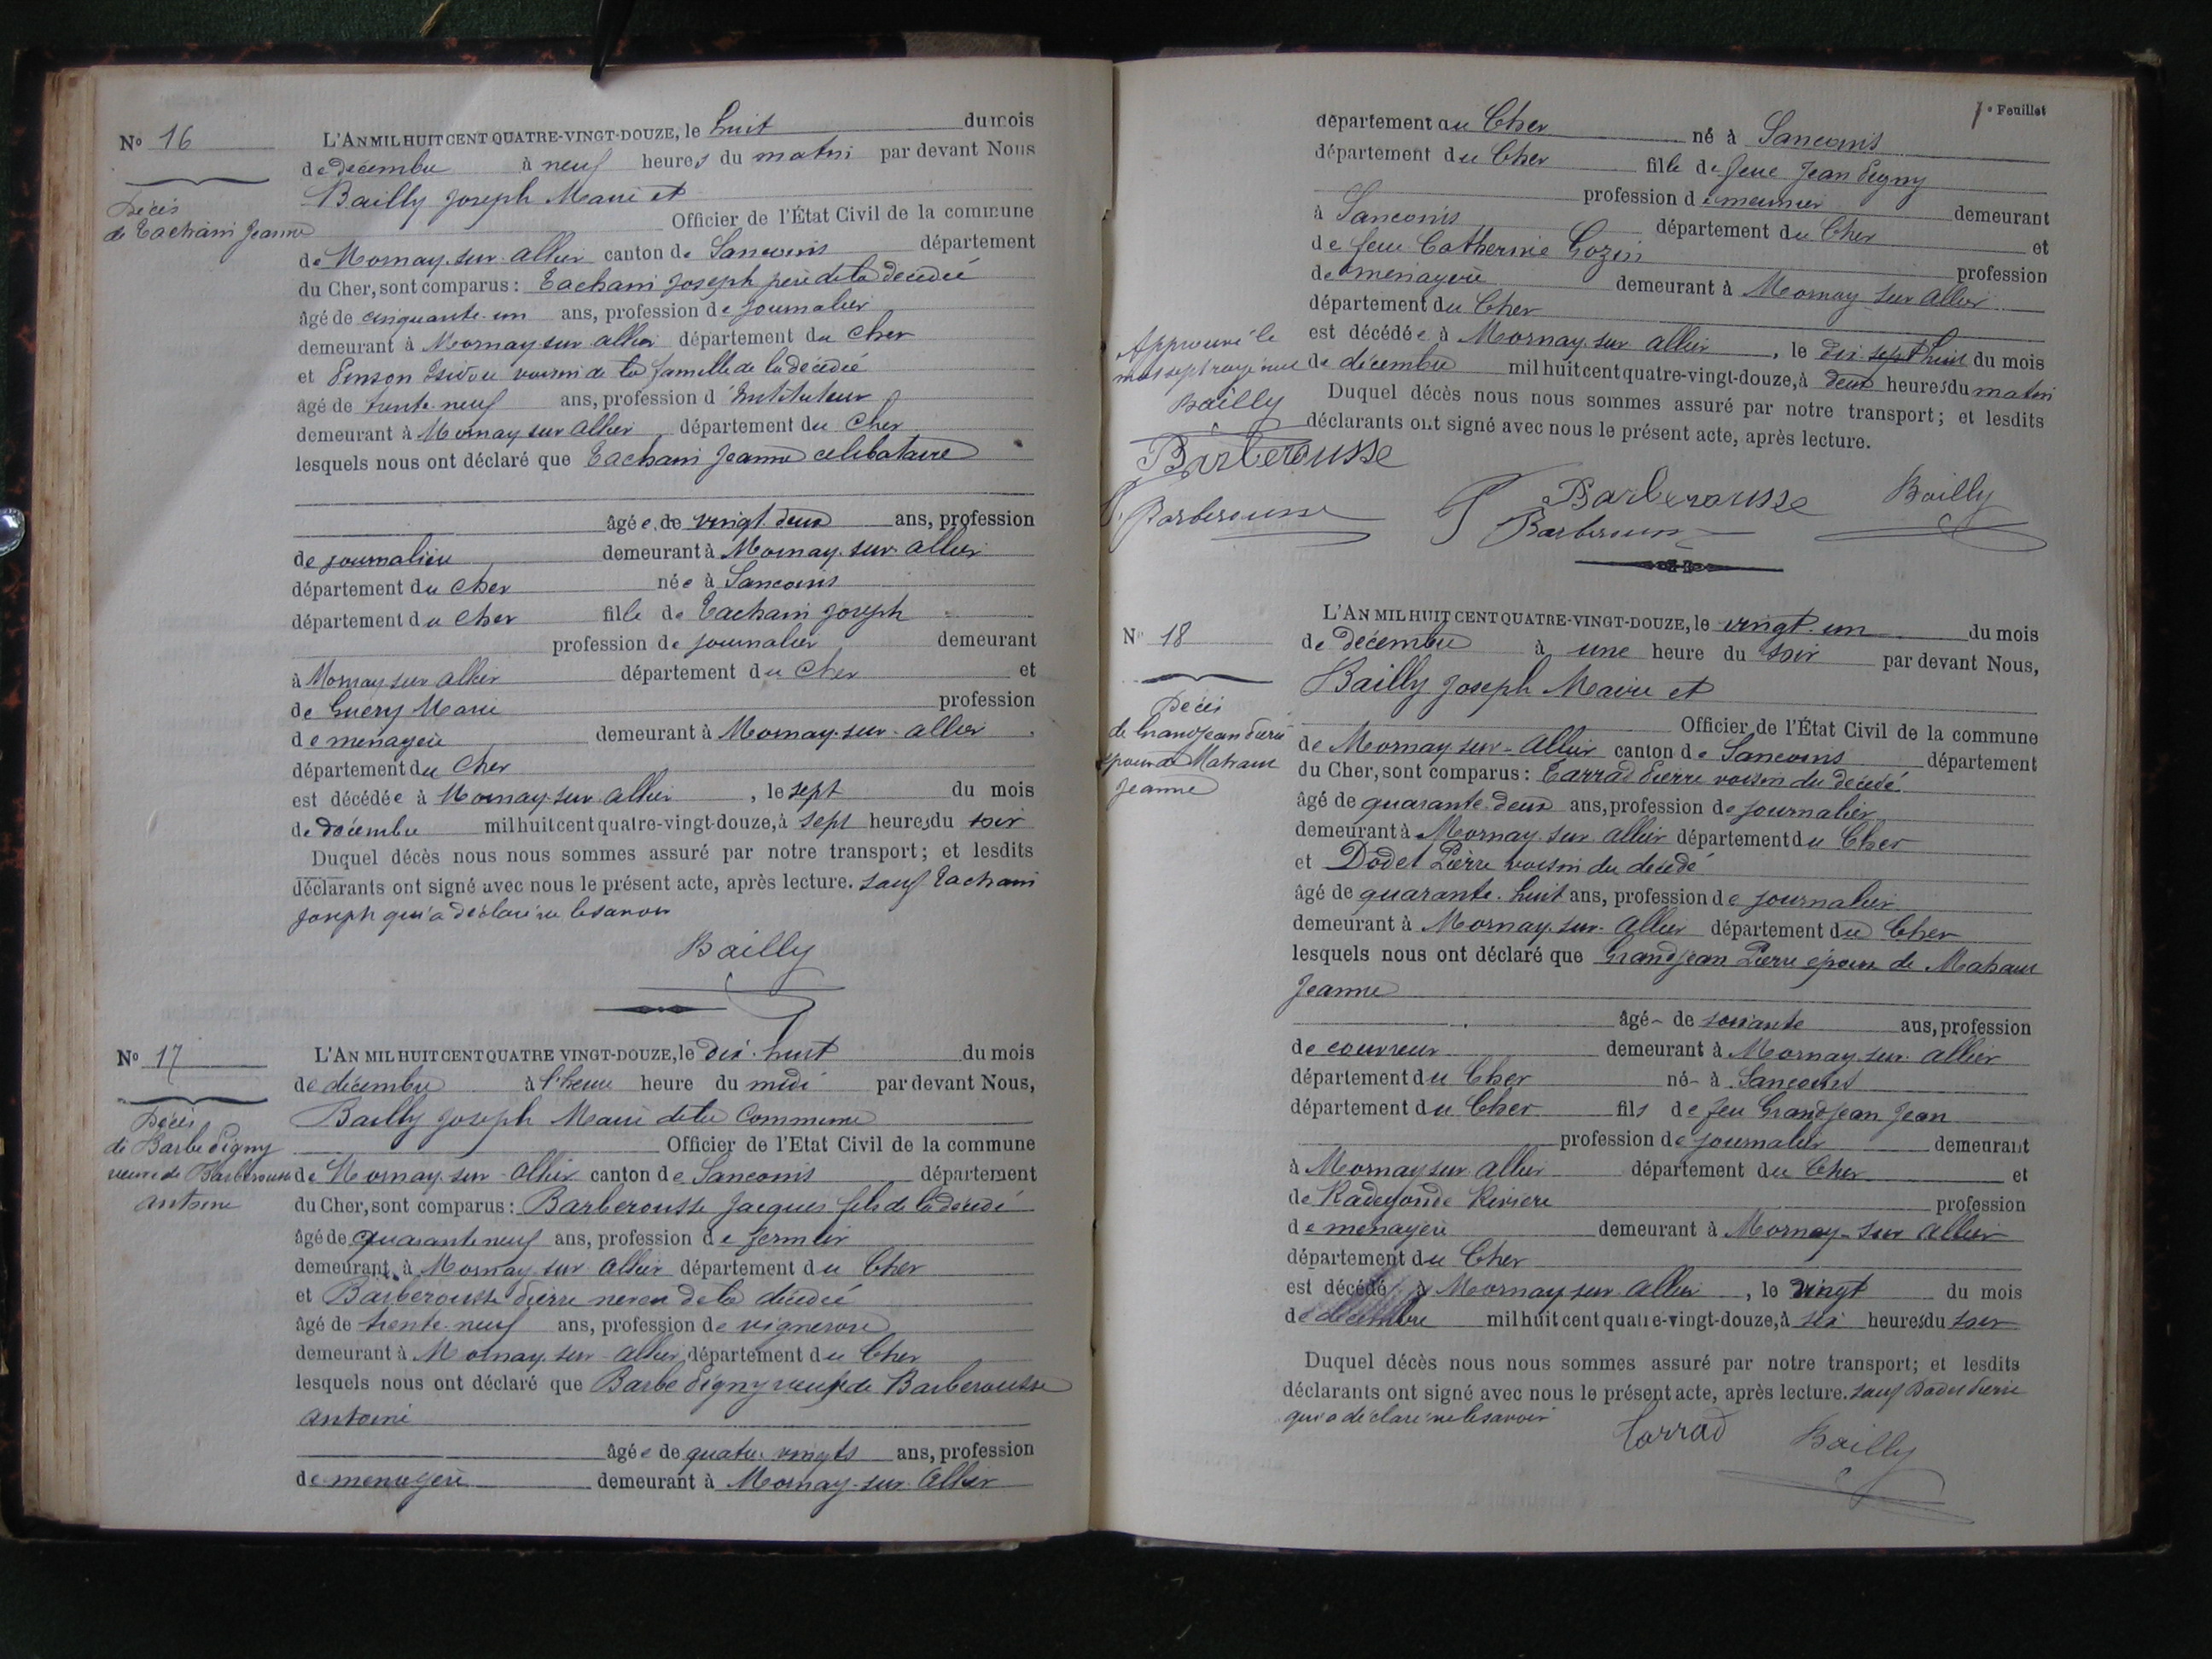 No 16
Décès
de Tachain Jeanne
L'AN MIL HUIT CENT QUATRE-VINGT-DOUZE, le huit du mois
de décembre à neuf heures du matin par devant Nous
Bailly Joseph Maire et
Officier de l'État Civil de la commune
de Mornay-sur-Allier canton de Sancoins département
du Cher, sont comparus : Tachain Joseph père de la décédée
âgé de cinquante-un ans, profession de journalier
demeurant à Mornay-sur-Allier département du Cher
et Penson Isidore voisin de la famille de la décédée
âgé de trente-neuf ans, profession d'Instituteur
demeurant à Mornay sur Allier département du Cher
lesquels nous ont déclaré que Tachain Jeanne célibataire
âgée de vingt-deux ans, profession
de journalière demeurant à Mornay-sur-Allier
département du Cher née à Sancoins
département du Cher fille de Tachain Joseph
profession de journalier demeurant
à Mornay sur Allier département du Cher et
de Guéry Marie profession
de ménagère demeurant à Mornay-sur-Allier
département du Cher
est décédée à Mornay-sur-Allier, le sept du mois
de décembre mil huit cent quatre-vingt-douze, à sept heures du soir
Duquel décès nous nous sommes assuré par notre transport; et lesdits
déclarants ont signé avec nous le présent acte, après lecture. sauf Tachain
Joseph qui a déclaré ne le savoir
Bailly
No 17
Décès
de Barbe Pigny
veuve de Barberousse
Antoine
L'AN MIL HUIT CENT QUATRE VINGT-DOUZE, le dix-huit du mois
de décembre à l'heure heure du midi par devant Nous,
Bailly Joseph Maire de la Commune
Officier de l'Etat Civil de la commune
de Mornay-sur-Allier canton de Sancoins département
du Cher, sont comparus : Barberousse Jacques fils de la décédé
âgé de quarante neuf ans, profession de fermier
demeurant à Mornay sur Allier département du Cher
et Barberousse Pierre neveu de la décédée
âgé de trente-neuf ans, profession de vigneron
demeurant à Mornay-sur-Allier département du Cher
lesquels nous ont déclaré que Barbe Pigny veuve de Barberousse
Antoine
âgée de quatre-vingts ans, profession
de ménagère demeurant à Mornay-sur-Allier
Feuillet
département du Cher né à Sancoins
département du Cher fille de feue Jean Pigny
profession de meunier demeurant
à Sancoins département du Cher et
de feue Catherine Gozin profession
de ménagère demeurant à Mornay sur Allier
département du Cher
est décédée à Mornay-sur-Allier, le dix sept huit du mois
de décembre mil huit cent quatre-vingt-douze, à deux heures du matin
Duquel décès nous nous sommes assuré par notre transport; et lesdits
déclarants ont signé avec nous le présent acte, après lecture.
Approuvé le
mot sept rayé nul
Bailly
Barberousse
Barberousse
Barberousse Bailly
Barberousse
No 18
Décès
de Grandjean Pierre
époux de Mahaut
Jeanne
L'AN MIL HUIT CENT QUATRE-VINGT-DOUZE, le vingt-un du mois
de décembre à une heure du soir par devant Nous,
Bailly Joseph Maire et
Officier de l'État Civil de la commune
de Mornay-sur-Allier canton de Sancoins département
du Cher, sont comparus : Tarrad Pierre voisin du décédé
âgé de quarante-deux ans, profession de journalier
demeurant à Mornay sur Allier département du Cher
et Dodet Pierre voisin du décédé
âgé de quarante-huit ans, profession de journalier
demeurant à Mornay-sur-Allier département du Cher
lesquels nous ont déclaré que Grandjean Pierre époux de Mahaut
Jeanne
âgé de soixante ans, profession
de couvreur demeurant à Mornay-sur-Allier
département du Cher né à Sancoins
département du Cher fils de feu Grandjean Jean
profession de journalier demeurant
à Mornay sur Allier département du Cher et
de Radegonde Rivière profession
de ménagère demeurant à Mornay-sur Allier
département du Cher
est décédé à Mornay sur Allier, le vingt du mois
de décembre mil huit cent quatre-vingt-douze, à six heures du soir
Duquel décès nous nous sommes assuré par notre transport; et lesdits
déclarants ont signé avec nous le présent acte, après lecture. sauf Dodet Pierre
qui a déclaré ne le savoir
Tarrad Bailly